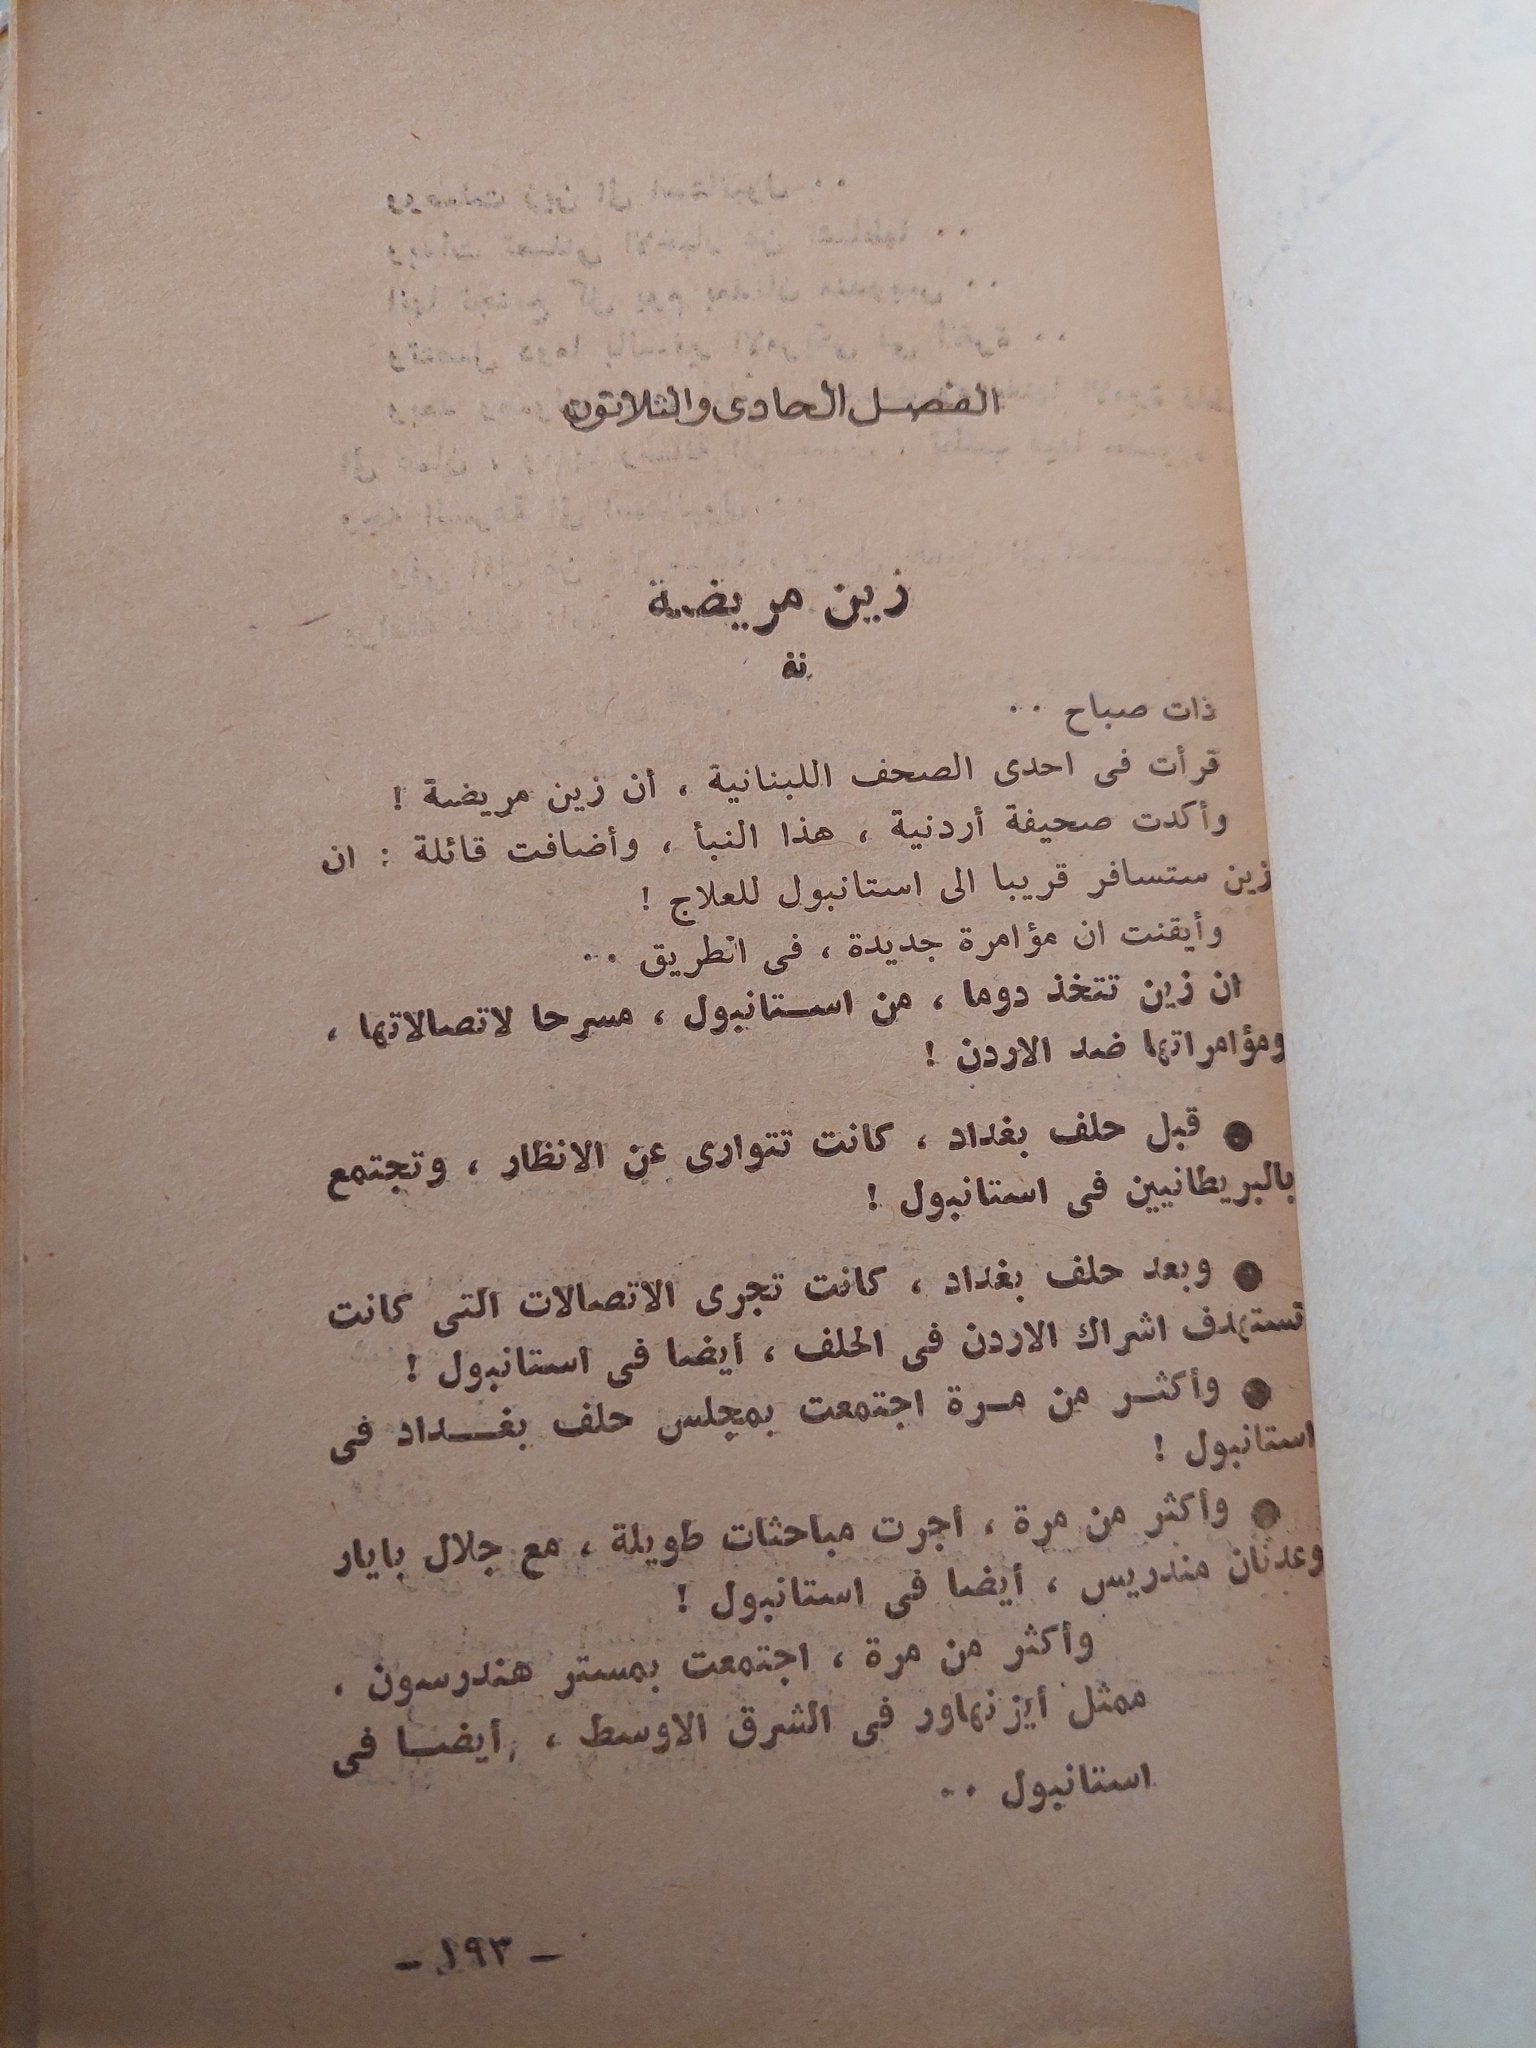 الفصل الحادى والثلاثون
زين مريضة
ذات صباح ..
قرأت فى احدى الصحف اللبنانية ، أن زين مريضة !
وأكدت صحيفة أردنية ، هذا النبأ ، وأضافت قائلة : ان
زين ستسافر قريبا الى استانبول للعلاج !
وأيقنت ان مؤامرة جديدة ، فى الطريق ..
ان زين تتخذ دوما ، من استانبول ، مسرحا لاتصالاتها ،
ومؤامراتها ضد الاردن !
● قبل حلف بغداد ، كانت تتوارى عن الانظار ، وتجتمع
بالبريطانيين فى استانبول !
● وبعد حلف بغداد ، كانت تجرى الاتصالات التى كانت
تستهدف اشراك الاردن فى الحلف ، أيضا فى استانبول !
● وأكثر من مرة اجتمعت بمجلس حلف بغداد فى
استانبول !
● وأكثر من مرة ، أجرت مباحثات طويلة ، مع جلال بايار
وعدنان مندريس ، أيضا فى استانبول !
وأكثر من مرة ، اجتمعت بمستر هندرسون ،
ممثل أيزنهاور فى الشرق الاوسط ، أيضا فى
استانبول ..
– ١٩٣ –